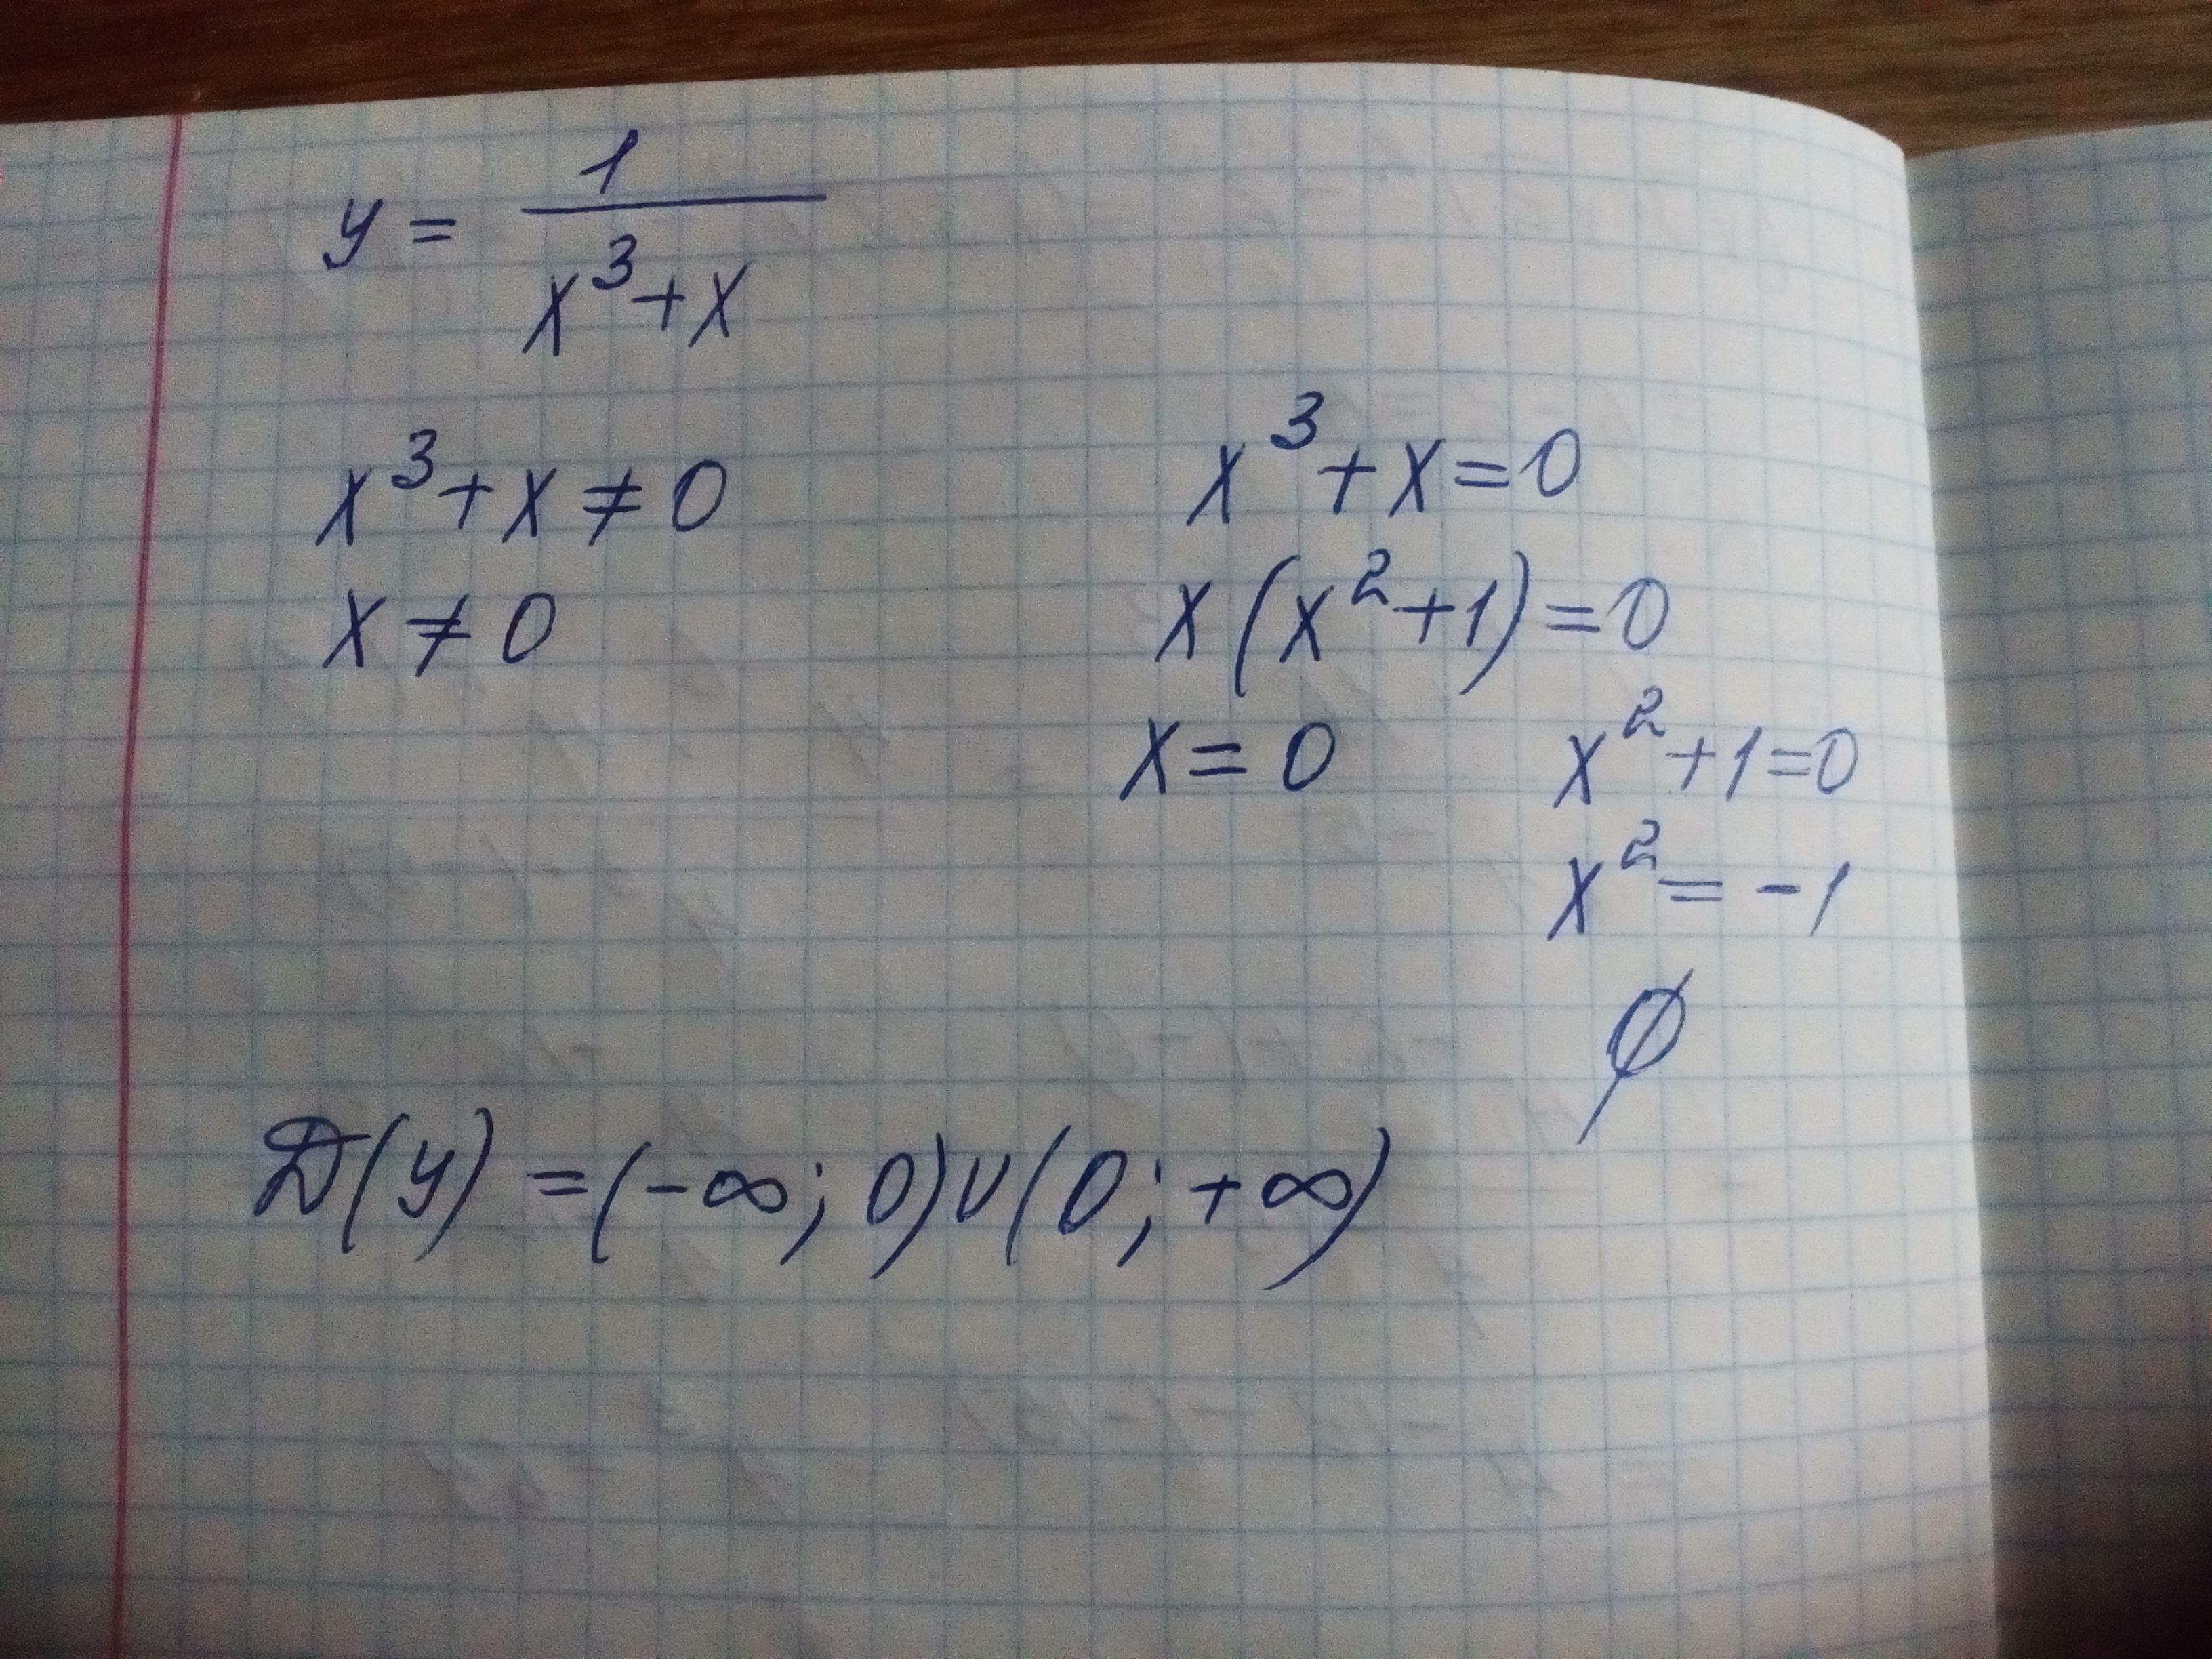 y = 1/(x³+x)
x³+x≠0
x≠0
x³+x=0
x(x²+1)=0
x=0 x²+1=0
x²=-1
∅
D(y)=(-∞;0)∪(0;+∞)